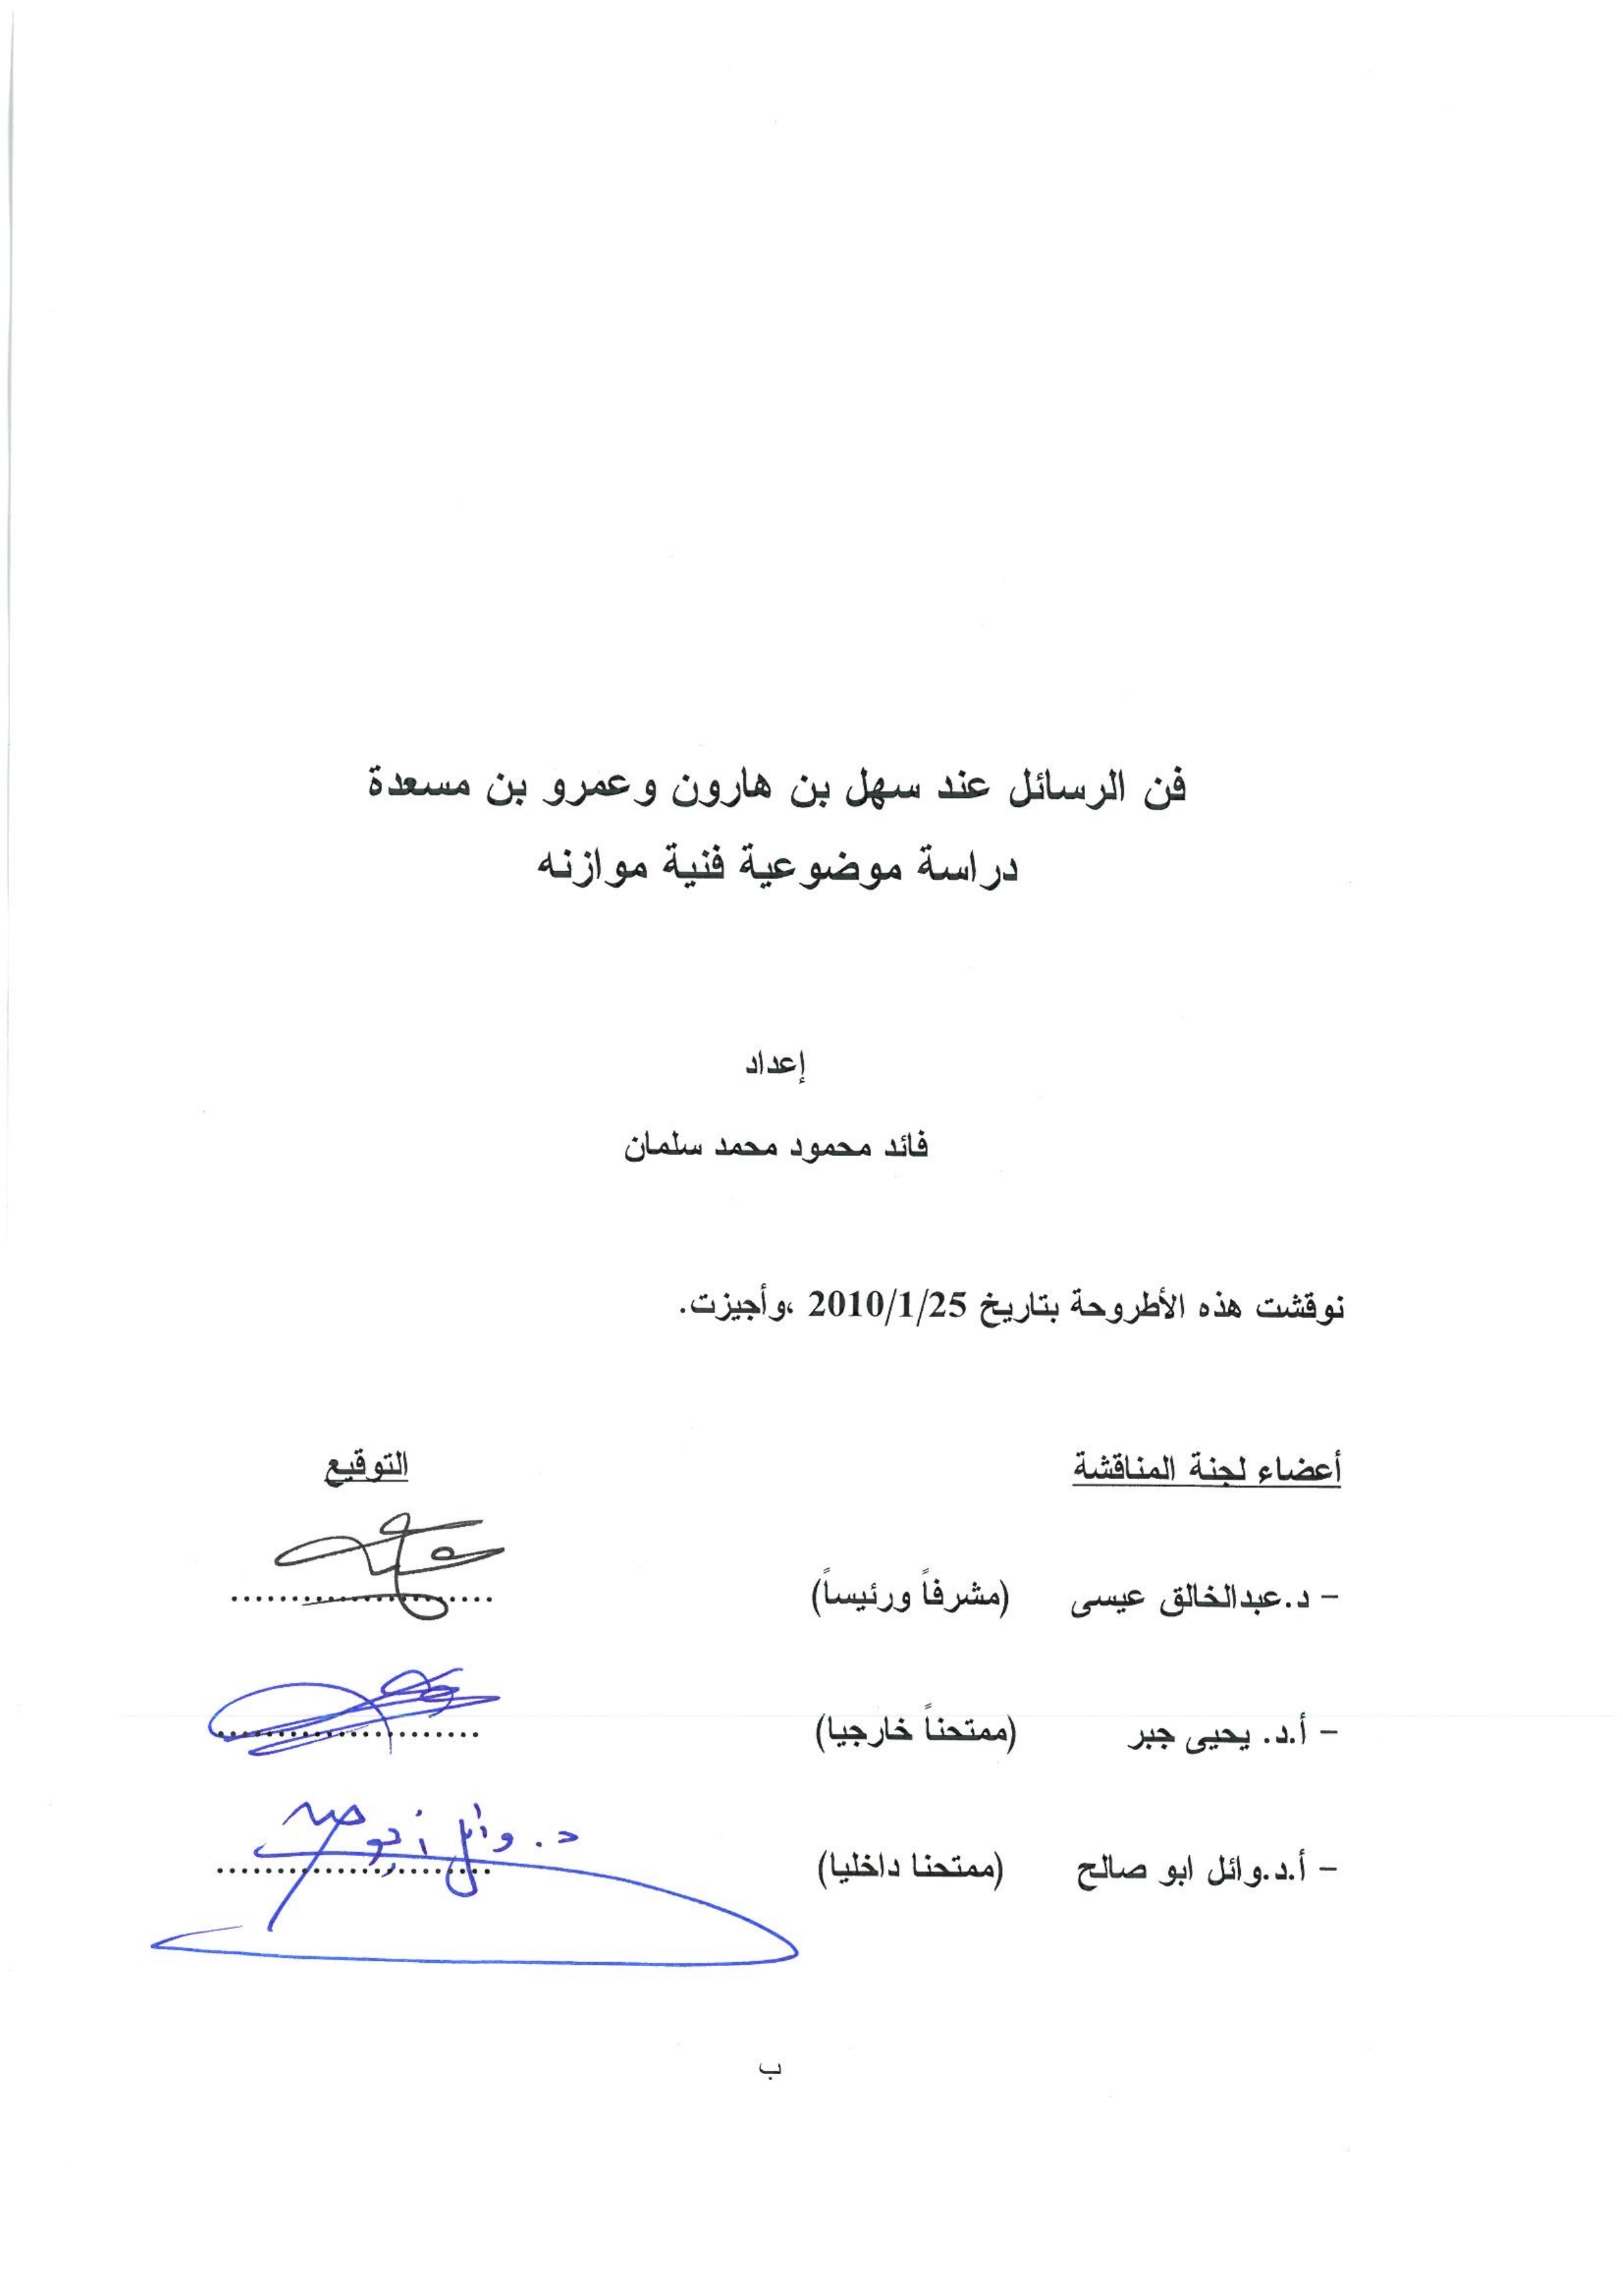 فن الرسائل عند سهل بن هارون وعمرو بن مسعدة
دراسة موضوعية فنية موازنه
إعداد
فائد محمود محمد سلمان
نوقشت هذه الأطروحة بتاريخ 2010/1/25 ،وأجيزت.
أعضاء لجنة المناقشة التوقيع
- د.عبدالخالق عيسى (مشرفاً ورئيساً) ......................
- أ.د. يحيى جبر (ممتحناً خارجيا) ......................
د. وائل أبو
- أ.د.وائل ابو صالح (ممتحنا داخليا) ......................
ب